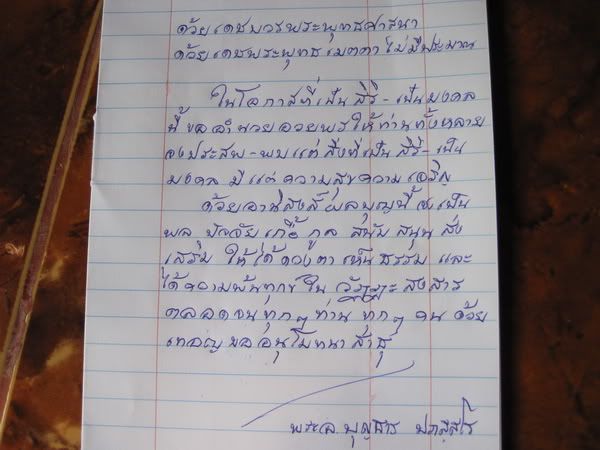 ด้วยเดชบวรพระพุทธศาสนา
ด้วยเดชพระพุทธเมตตาไม่มีประมาณ
ในโอกาสที่เป็นสิริ-เป็นมงคล
นี้ ขออำนวยอวยพรให้ท่านทั้งหลาย
จงประสพ-พบแต่สิ่งที่เป็นสิริ-เป็น
มงคล มีแต่ความสุขความเจริญ
ด้วยอานิสงส์ผลบุญนี้ จงเป็น
พลปัจจัยเกื้อกูล สนับสนุนส่ง
เสริม ให้ได้ดวงตาเห็นธรรม และ
ได้ความพ้นทุกข์ใน วัฏฏะสงสาร
ตลอดจนทุกๆท่าน ทุกๆคน ด้วย
เทอญ ขออนุโมทนาสาธุ
พระอ.บุญ